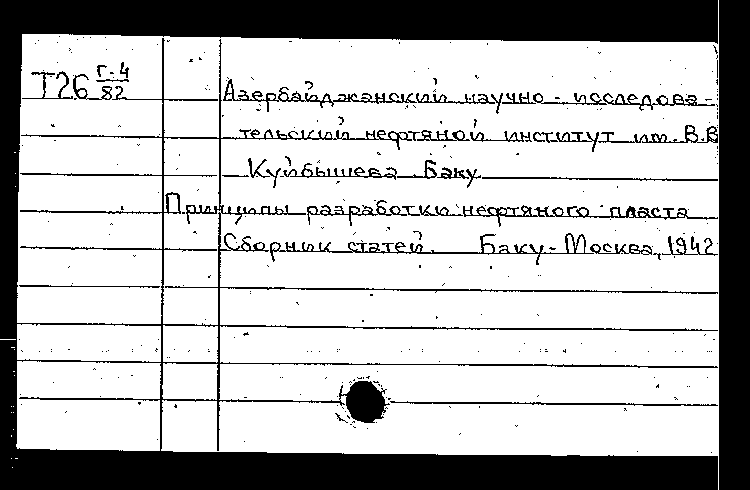 Т26 Г-4
82
Азербайджанский научно-исследова-
тельский нефтяной институт им. В.В
Куйбышева. Баку.
Принципы разработки нефтяного пласта
Сборник статей. Баку-Москва, 1942